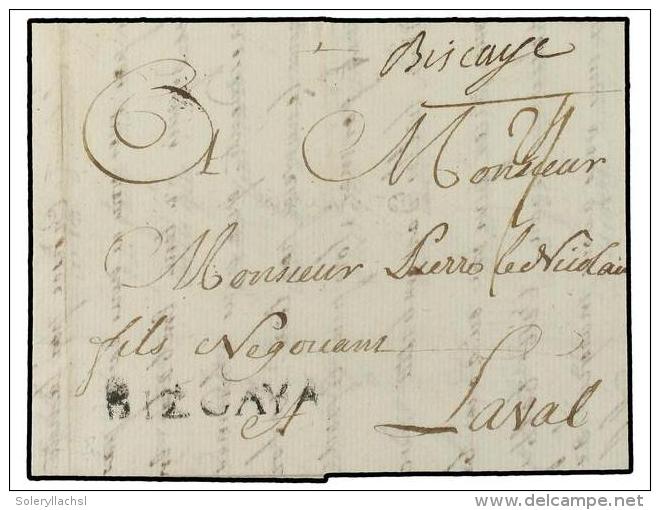 Biscaye
A Monsieur
Monsieur Pierre le Nicolais
fils Negociant
BIZCAYA
A Laval
Soleryllachsl
delcampe.net